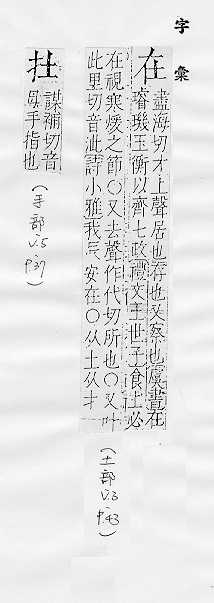 字彙
在 盡海切才上聲居也存也又察也虞書在
璿璣玉衡以齊七政禮文王世子食上必
在視寒煖之節〇又去聲作代切所也〇又叶
此里切音泚詩小雅我辰安在〇从土从才
(土部 V.3 P.43)
拇 謀補切音
母手指也
(手部 V.5 P.37)